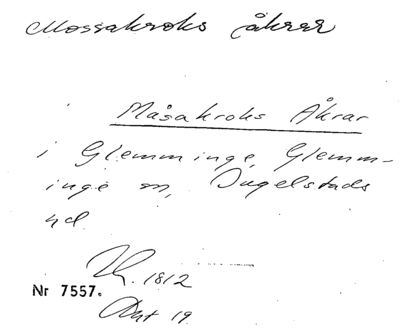 Mossakroks åkrar
Måsakroks Åkrar
i Glemminge, Glemm-
inge sn, Ingelstads
hd
1812
Nr 7557.
Akt 19